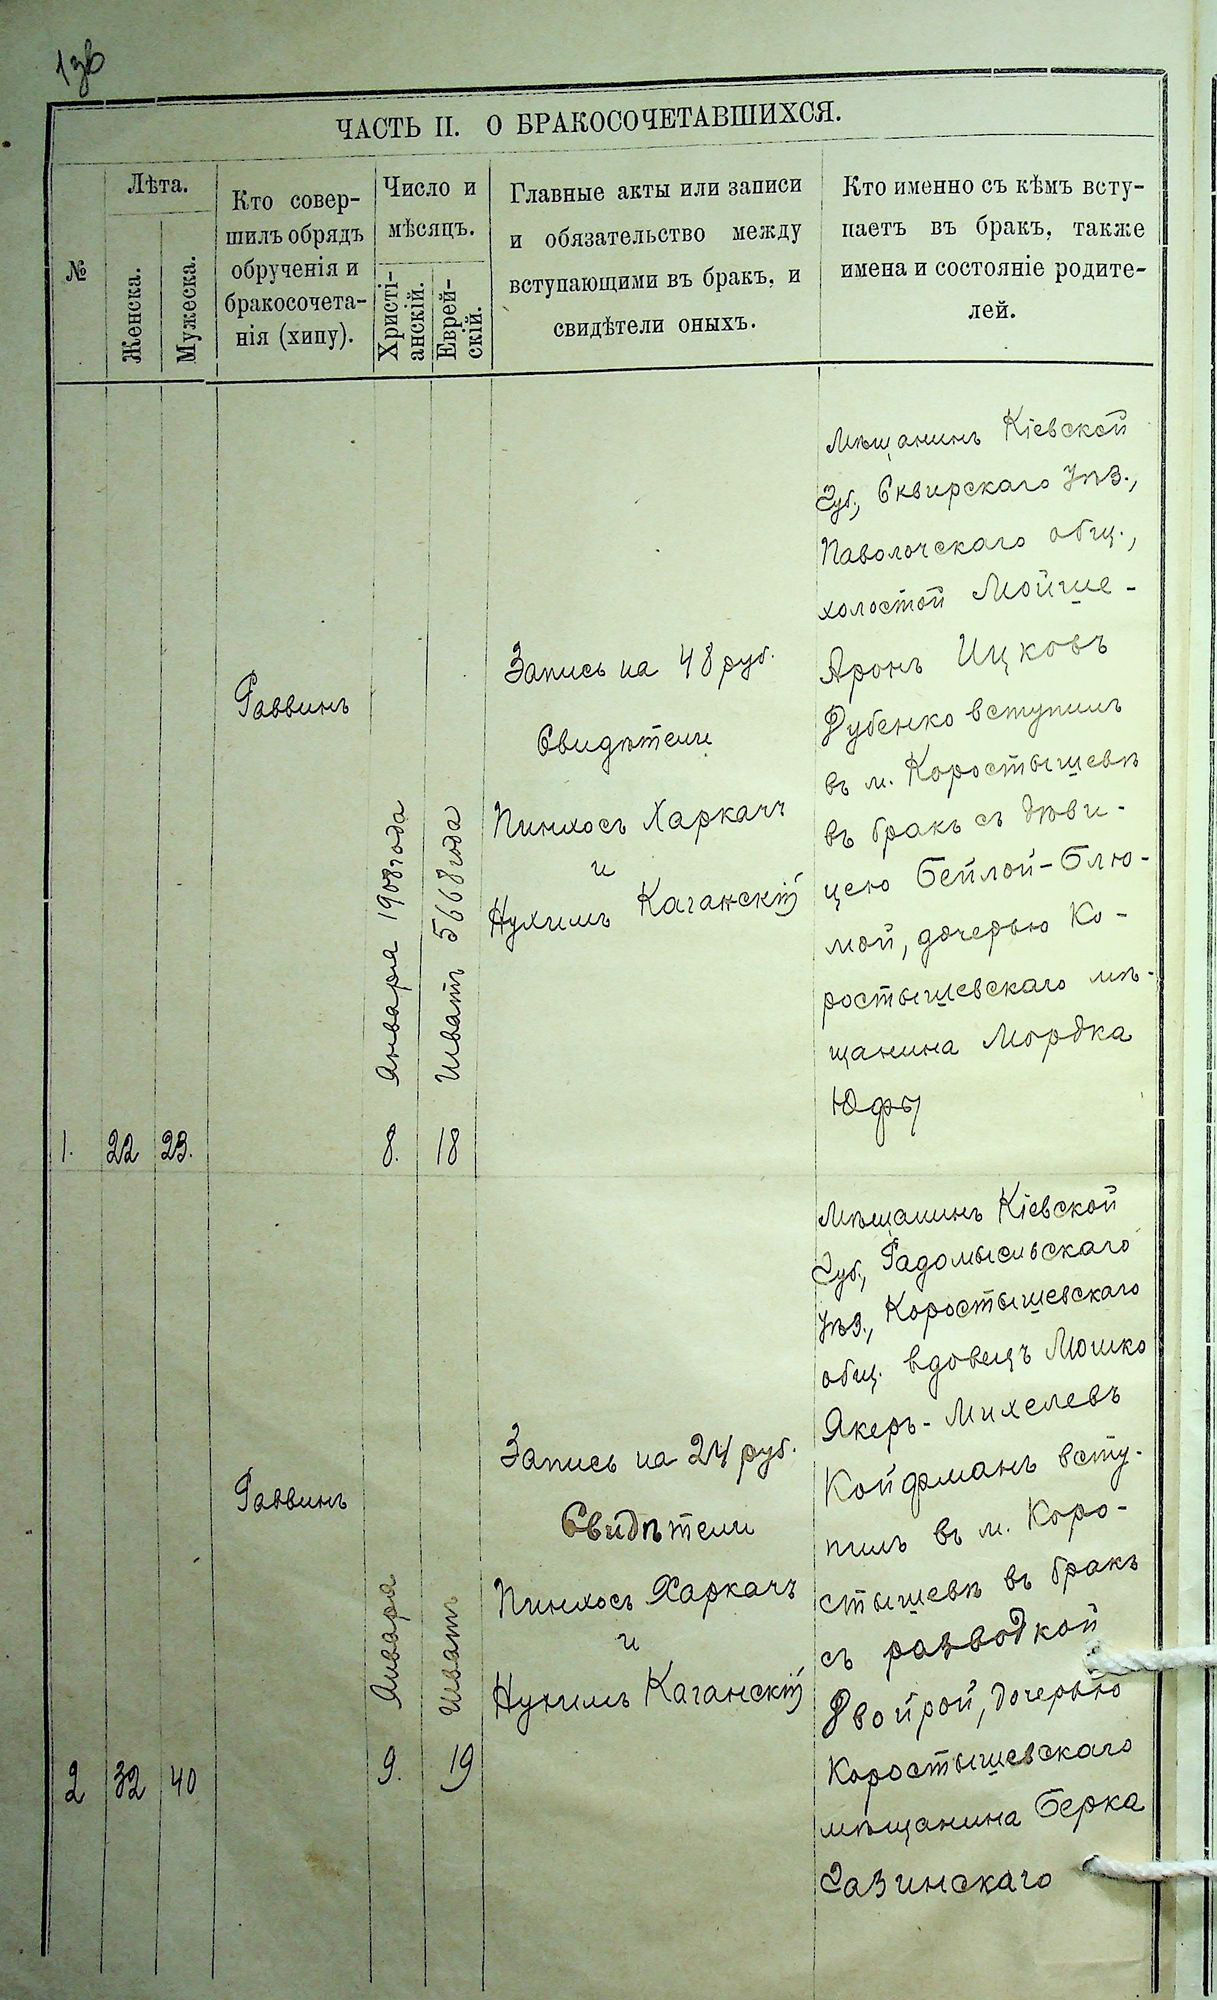 ЧАСТЬ II. О БРАКОСОЧЕТАВШИХСЯ.
№
Лѣта.
Женска.
Мужеска.
Кто совер-
шилъ обрядъ
обрученія и
бракосочета-
нія (хипу).
Число и
мѣсяцъ.
Христі-
анскій.
Еврей-
скій.
Главные акты или записи
и обязательство между
вступающими въ бракъ, и
свидѣтели оныхъ.
Кто именно съ кѣмъ всту-
паетъ въ бракъ, также
имена и состояніе родите-
лей.
1.
22
23.
Раввинъ
8.
Января 1908 года
18
Шватъ 5668 года
Запись на 48 руб.
Свидѣтели
Пинхосъ Харкачъ
и
Нухимъ Каганскій
Мѣщанинъ Кіевской
Губ., Сквирскаго Уѣз.,
Паволочскаго общ.,
холостой Мойше-
Аронъ Ицковъ
Рубенко вступилъ
въ м. Коростышевѣ
въ бракъ съ дѣви-
цею Бейлой-Блю-
мой, дочерью Ко-
ростышевскаго мѣ-
щанина Мордка
Юфы
2
32
40
Раввинъ
9.
Января
19
Шватъ
Запись на 24 руб.
Свидѣтели
Пинхосъ Харкачъ
и
Нухимъ Каганскій
Мѣщанинъ Кіевской
Губ., Радомысльскаго
Уѣз., Коростышевскаго
общ. вдовецъ Мошко
Якеръ-Михелевъ
Койфманъ всту-
пилъ въ м. Коро-
стышевѣ въ бракъ
съ разводкой
Двойрой, дочерью
Коростышевскаго
мѣщанина Берка
Газинскаго